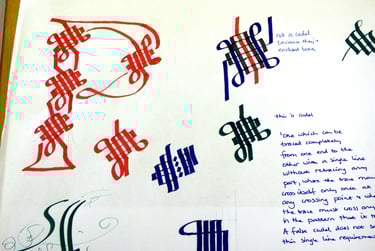 not a cadel
because they
this is cadel
'one which can be
traced completely
from one end to the
other with a single line
without retracing any
part, where the trace may
cross itself only once at
any crossing point &
the trace must cross any
in the pattern that is
A false cadel does not
this single line requirement